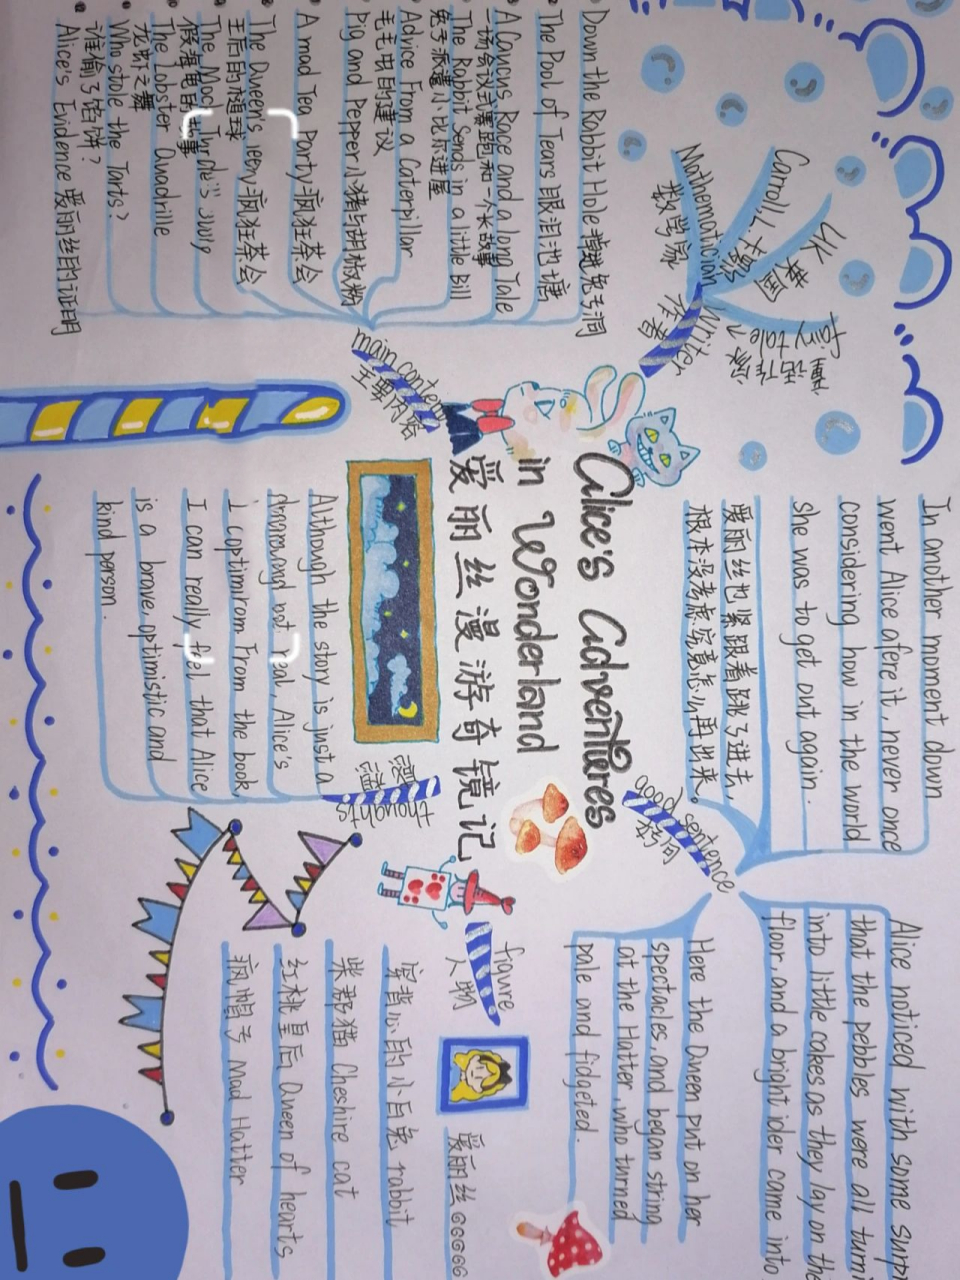 Alice's Adventures
in Wonderland
爱丽丝漫游奇镜记
Writer
作者
Mathematician
数学家
Carroll.卡罗
UK 英国
fairy tale
童话作家
main content
主要内容
Down the Rabbit Hole 掉进兔子洞
The Pool of Tears 眼泪池塘
A Caucus Race and a long Tale
一场会议式赛跑和一个长故事
The Rabbit Sends in a little Bill
兔子派遣小比尔进屋
Advice From a Caterpillar
毛毛虫的建议
Pig and Pepper 小猪与胡椒粉
A mad Tea Party 疯狂茶会
The Queen's 疯狂茶会
王后的槌球
The Mock Turtle's
假海龟的故事
The Lobster Quadrille
龙虾之舞
Who stole the Tarts?
谁偷了馅饼？
Alice's Evidence 爱丽丝的证明
good sentence
句段
In another moment down
went Alice afere it, never once
considering how in the world
she was to get out again.
爱丽丝也紧跟着跳了进去，
根本没考虑究竟怎么再出来。
Alice noticed with some surp
that the pebbles were all turn
into little cakes as they lay on th
floor, and a bright ider came into
Here the Queen put on her
spectacles, and began string
at the Hatter, who turned
pale and fidgeted.
thoughts
感想
Although the story is just a
dream and not real, Alice's
optim from From the book,
I can really feel that Alice
is a brave, optimistic and
kind person.
figure
人物
爱丽丝
穿背心的小白兔 rabbit
柴郡猫 Cheshire cat
红桃皇后 Queen of hearts
疯帽子 Mad Hatter